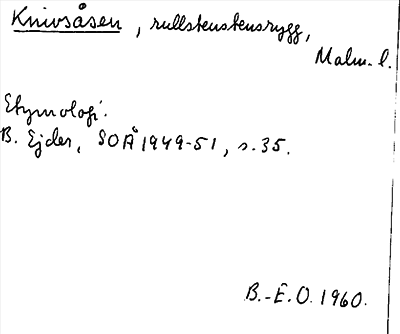 Knivsåsen, rullstenstensrygg,
Malm. l.
Etymologi.
B. Ejder, SOÅ 1949-51, s. 35.
B.-E.O. 1960.